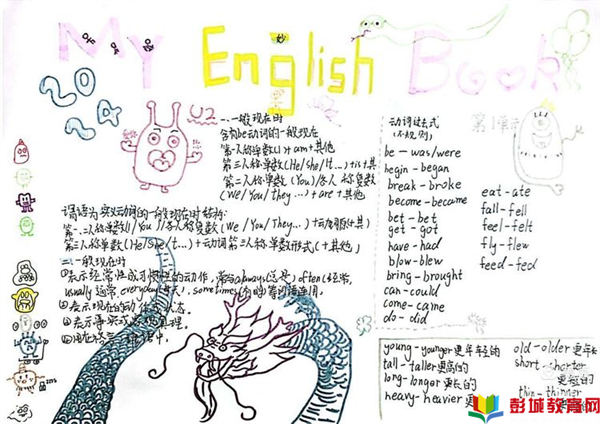 My English Book
2024
U2
一.一般现在时
含有be动词的一般现在
第一人称单数(I)+am+其他
第三人称单数(He/she/It...)+is+其
第二人称单数(You)/各人称复数
(We/You/they...)+are+其他
谓语为实义动词的一般现在时结构:
第三人称单数(He/She/It...)+动词第三人称单数形式(+其他)
二.一般现在时
①表示经常性或习惯性的动作,常与always(总是)often(经常,
usually通常,everyday(每天),sometimes(有时)等词语连用。
动词过去式
(不规则)
第1单元
be — was/were
begin - began
break - broke
become - became
bet - bet
get - got
have - had
blow - blew
bring - brought
can - could
come - came
do - did
eat - ate
fall - fell
feel - felt
fly - flew
feed - fed
young - younger更年轻的
tall - taller更高的
long - longer更长的
heavy - heavier更
old - older更年长
short - shorter
更短的
thin - thinner
彭城教育网